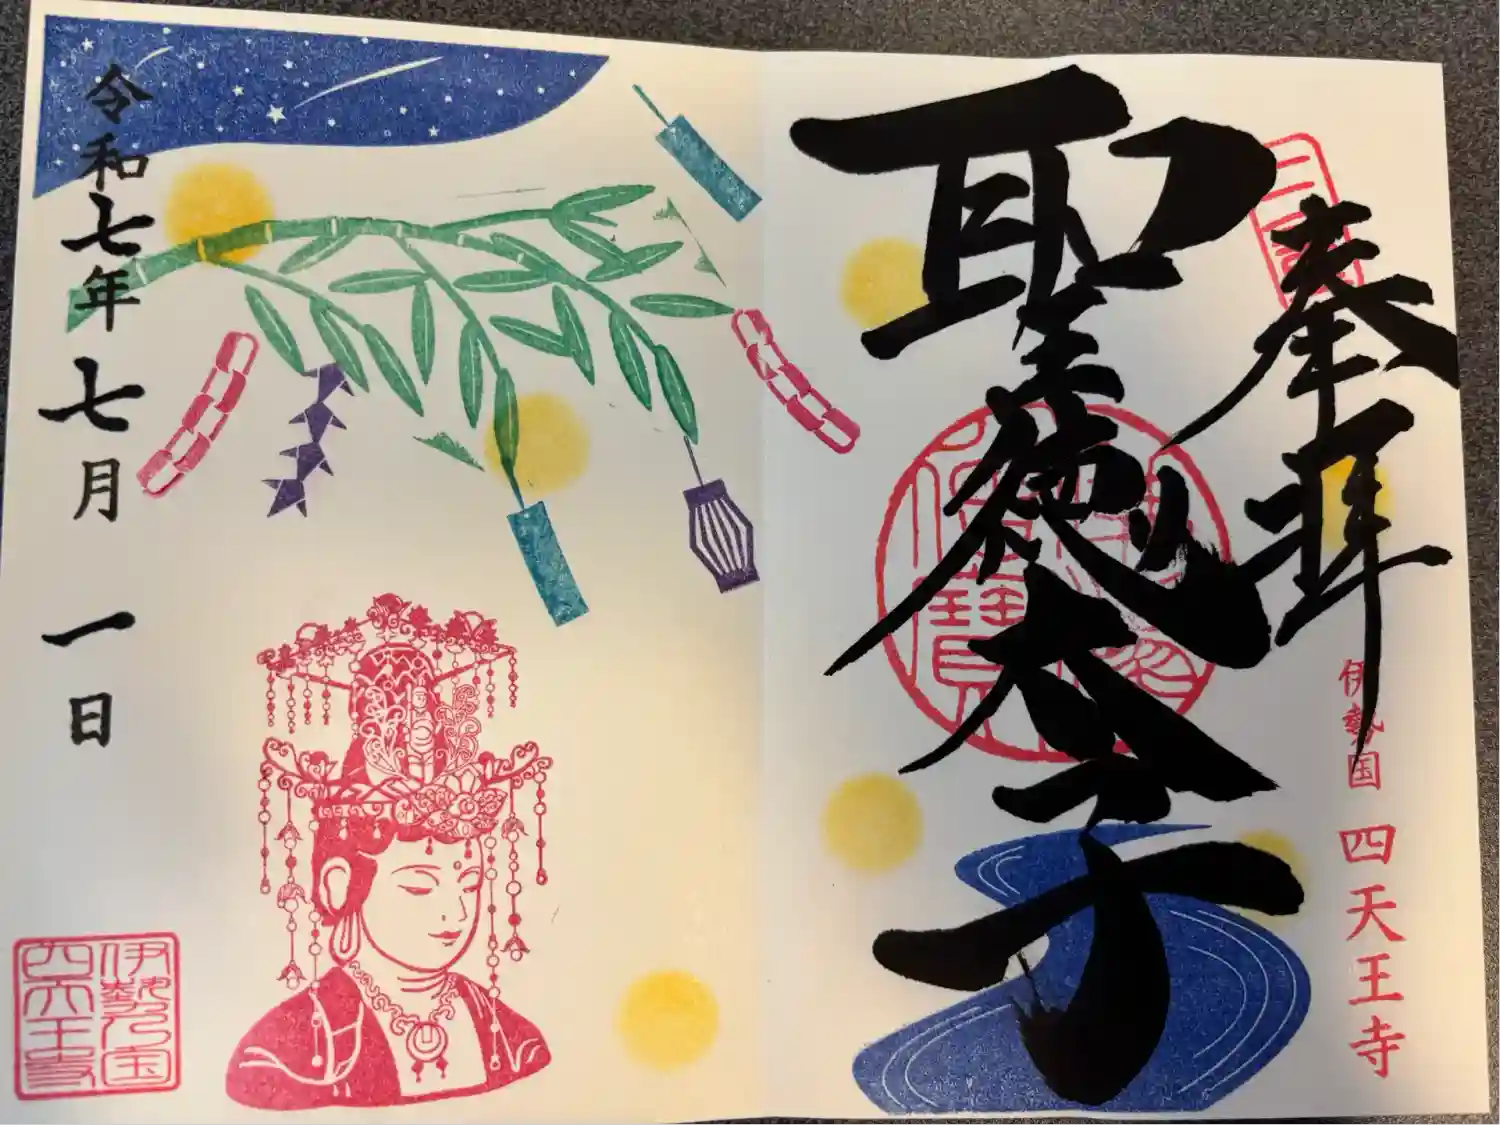 奉拝
聖徳太子
伊勢国
四天王寺
令和七年七月一日
伊勢国
四天王寺